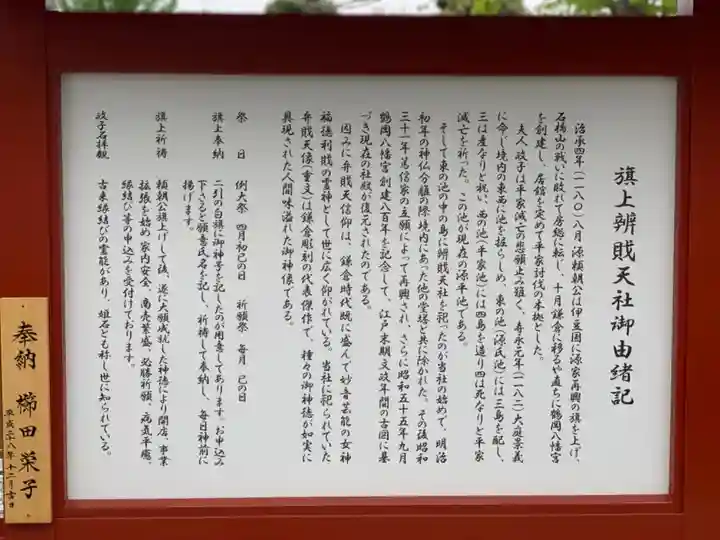 旗上辨財天社御由緒記
治承四年(一一八〇)八月 源頼朝公は伊豆国に源家再興の旗を上げ、
石橋山の戦いに敗れて房総に転じ、十月鎌倉に移るや直ちに鶴岡八幡宮
を創建し、居館を定めて平家討伐の本拠とした。
夫人 政子は平家滅亡の悲願止み難く、寿永元年(一一八二)大庭景義
に命じ境内の東西に池を掘らしめ、東の池(源氏池)には三島を配し、
三は産なりと祝い、西の池(平家池)には四島を造り四は死なりと平家
滅亡を祈った。この池が現在の源平池である。
そして東の池の中の島に辨財天社を祀ったのが当社の始めで、明治
初年の神仏分離の際境内にあった他の堂塔と共に除かれた。その後昭和
三十一年篤信家の立願によって再興され、さらに昭和五十五年九月
鶴岡八幡宮創建八百年を記念して、江戸末期文政年間の古図に基
づき現在の社殿が復元されたのである。
因みに弁財天信仰は、鎌倉時代既に盛んで妙音芸能の女神
福徳利財の霊神として世に広く仰がれている。当社に祀られていた
弁財天像(重文)は鎌倉彫刻の代表傑作で、種々の御神徳が如実に
具現された人間味溢れた御神像である。
祭 日 例大祭 四月初巳の日 祈願祭 毎月 巳の日
旗上奉納 二引の白旗に御神号を記したのが用意してあります。お申込み
下さると願意氏名を記し、祈祷して奉納し、毎日神前に
揚げます。
旗上祈祷 頼朝公旗上げして後、遂に大願成就した神徳により開店、事業
拡張を始め 家内安全、商売繁盛、必勝祈願、病気平癒、
縁結び等の申込みを受付けております。
政子石拝観 古来縁結びの霊能があり、姫石とも称し世に知られている。
奉納 櫛田栄子
平成二八年十二月吉日